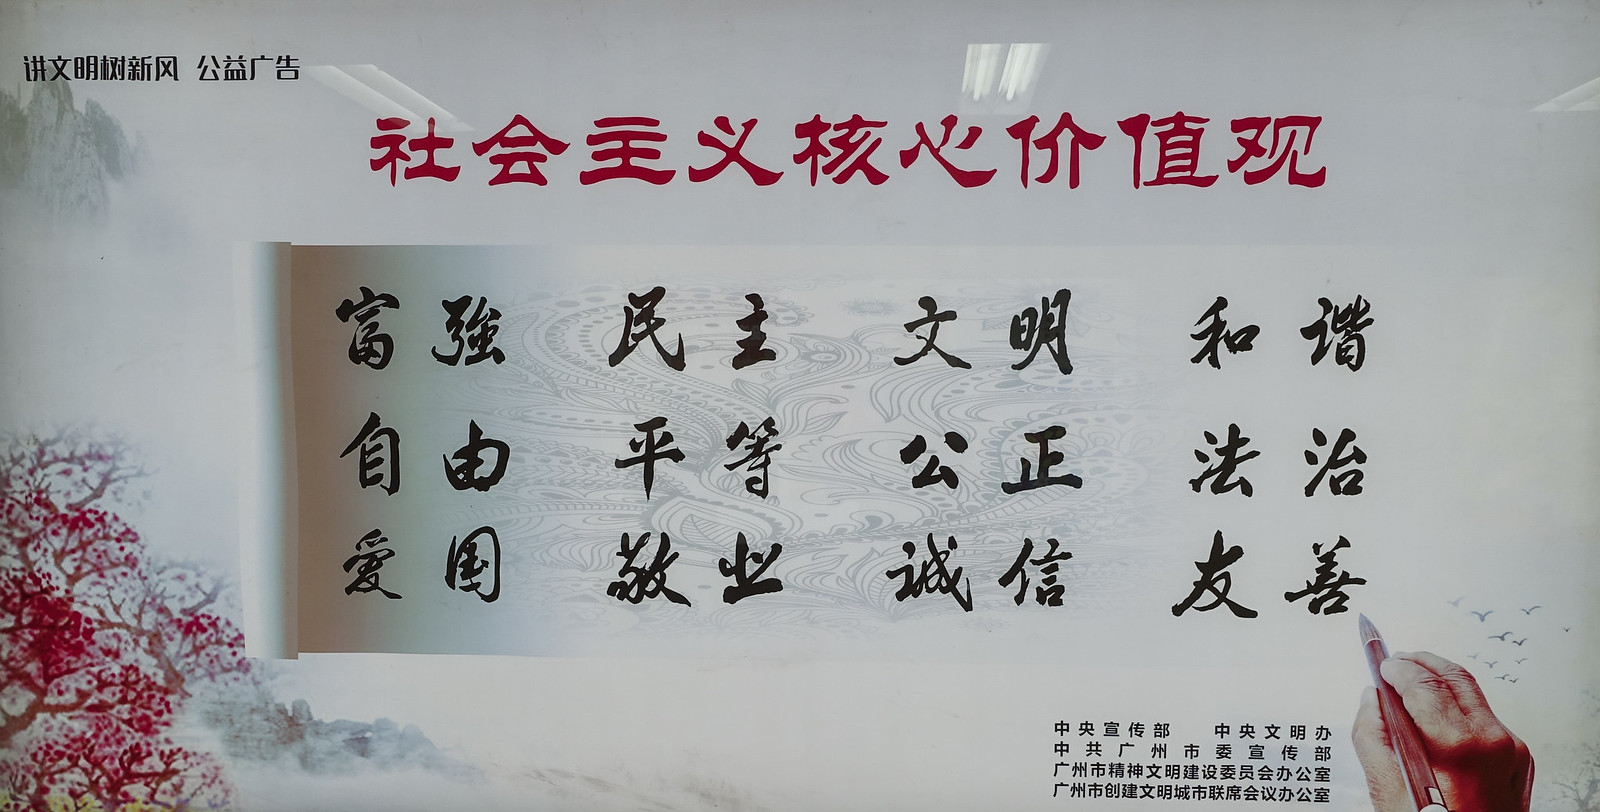 讲文明树新风 公益广告
社会主义核心价值观
富強 民主 文明 和谐
自由 平等 公正 法治
爱国 敬业 诚信 友善
中央宣传部 中央文明办
中共广州市委宣传部
广州市精神文明建设委员会办公室
广州市创建文明城市联席会议办公室